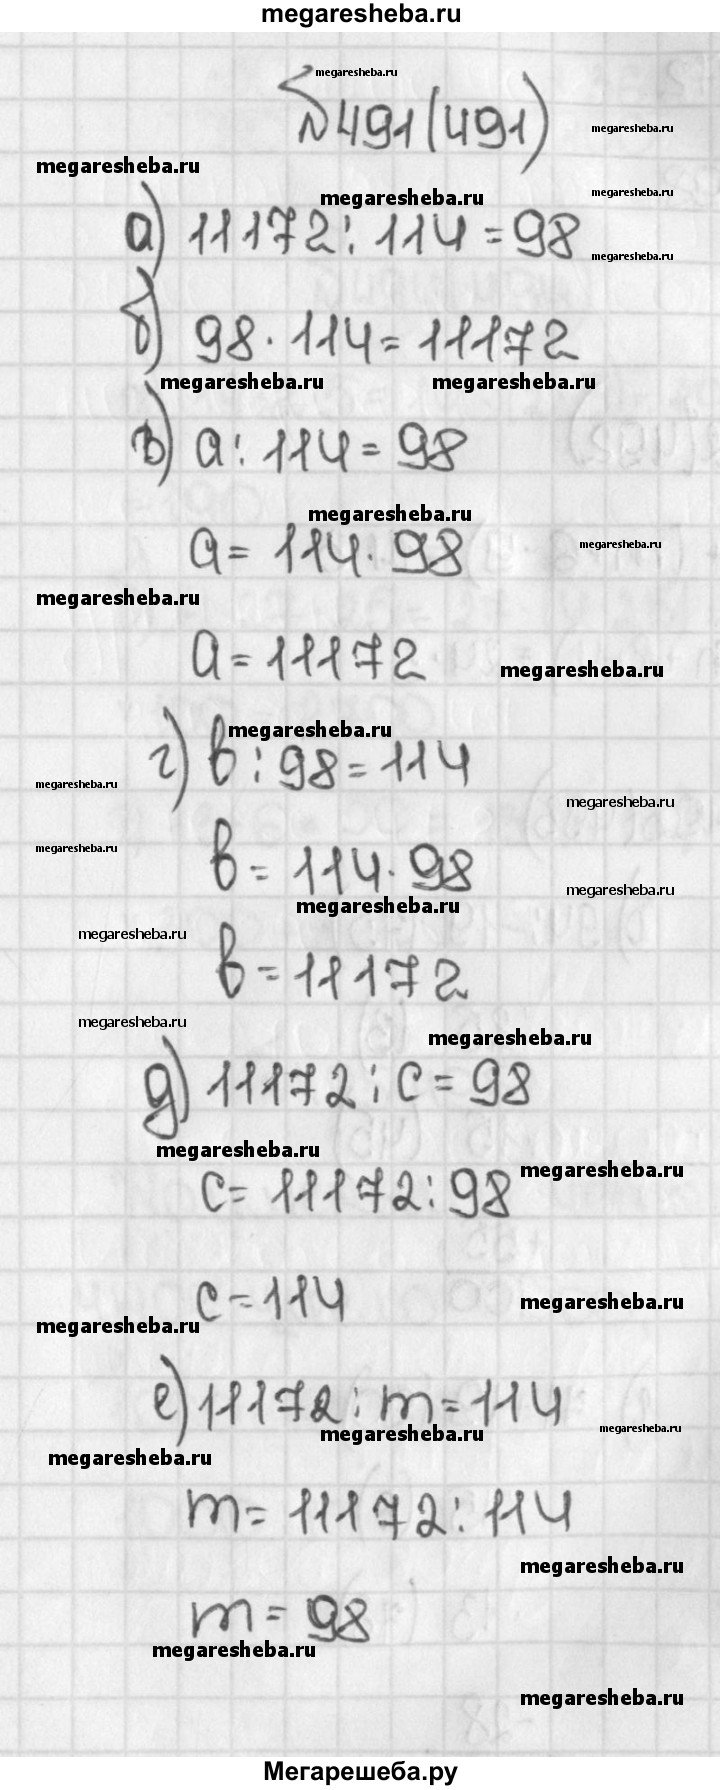 megaresheba.ru
megaresheba.ru
№491(491)
megaresheba.ru
megaresheba.ru
megaresheba.ru
megaresheba.ru
а) 11172 : 114 = 98
megaresheba.ru
б) 98 · 114 = 11172
megaresheba.ru megaresheba.ru
в) а : 114 = 98
megaresheba.ru
а = 114 · 98
megaresheba.ru
megaresheba.ru
а = 11172
megaresheba.ru
megaresheba.ru
г) в : 98 = 114
megaresheba.ru
megaresheba.ru
megaresheba.ru
в = 114 · 98
megaresheba.ru
megaresheba.ru
megaresheba.ru
в = 11172
megaresheba.ru
megaresheba.ru
д) 11172 : с = 98
megaresheba.ru
megaresheba.ru
с = 11172 : 98
с = 114
megaresheba.ru
megaresheba.ru
е) 11172 : m = 114
megaresheba.ru
megaresheba.ru
megaresheba.ru
m = 11172 : 114
megaresheba.ru
m = 98
megaresheba.ru
megaresheba.ru
Мегарешеба.ру